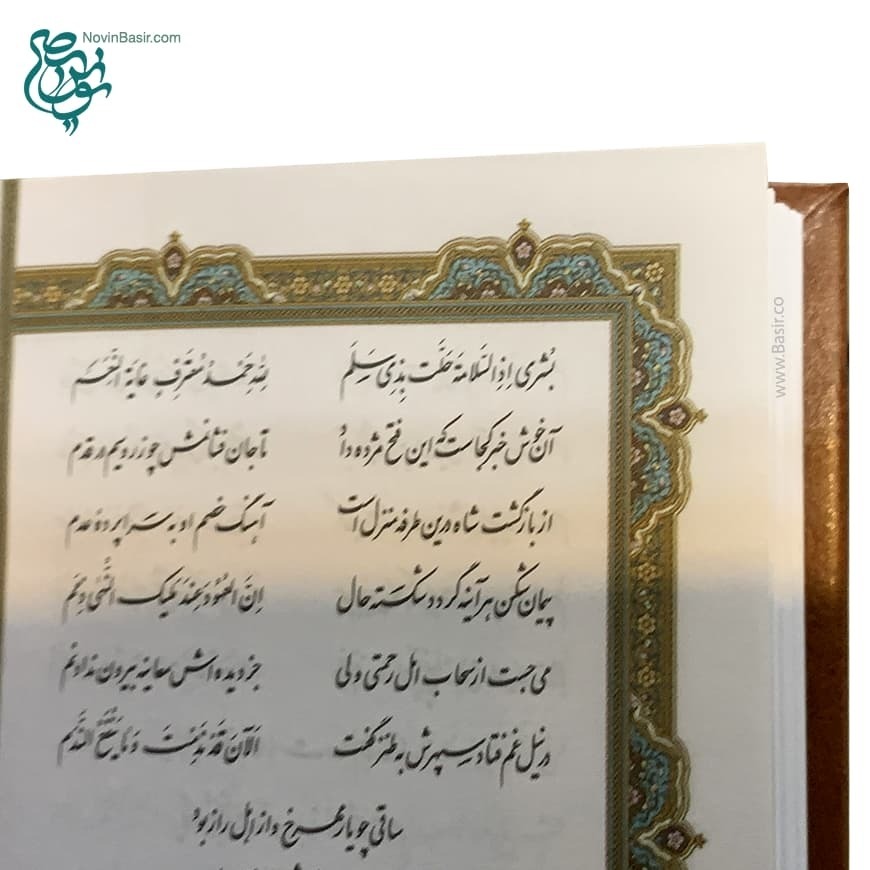 NovinBasir.com
نوین بصیر
بُشری اِذِ السَّلامَةُ حَلَّت بِذی سَلَم لِلّهِ حَمْدُ مُعتَرِفٍ غایَةَ النِّعَم
آن خوش خبر کجاست که این فتح مژده داد تا جان فشانمش چو زر و سیم در قدم
از بازگشت شاه درین طرفه منزل است آهنگ خصم او به سراپرده عدم
پیمان شکن هرآینه گردد شکسته حال اِنَّ العُهُودَ عِندَ مَلیکِ النُّهی ذِمَم
می جست از سحاب امل رحمتی ولی جز دیده‌اش معاینه بیرون نداد نم
در نیل غم فتاد سپهرش به طنز گفت اَلآنَ قَد نَدِمتَ وَ ما یَنفَعُ النَّدَم
ساقی چو یار مهرخ و از اهل راز بود
www.Basir.co